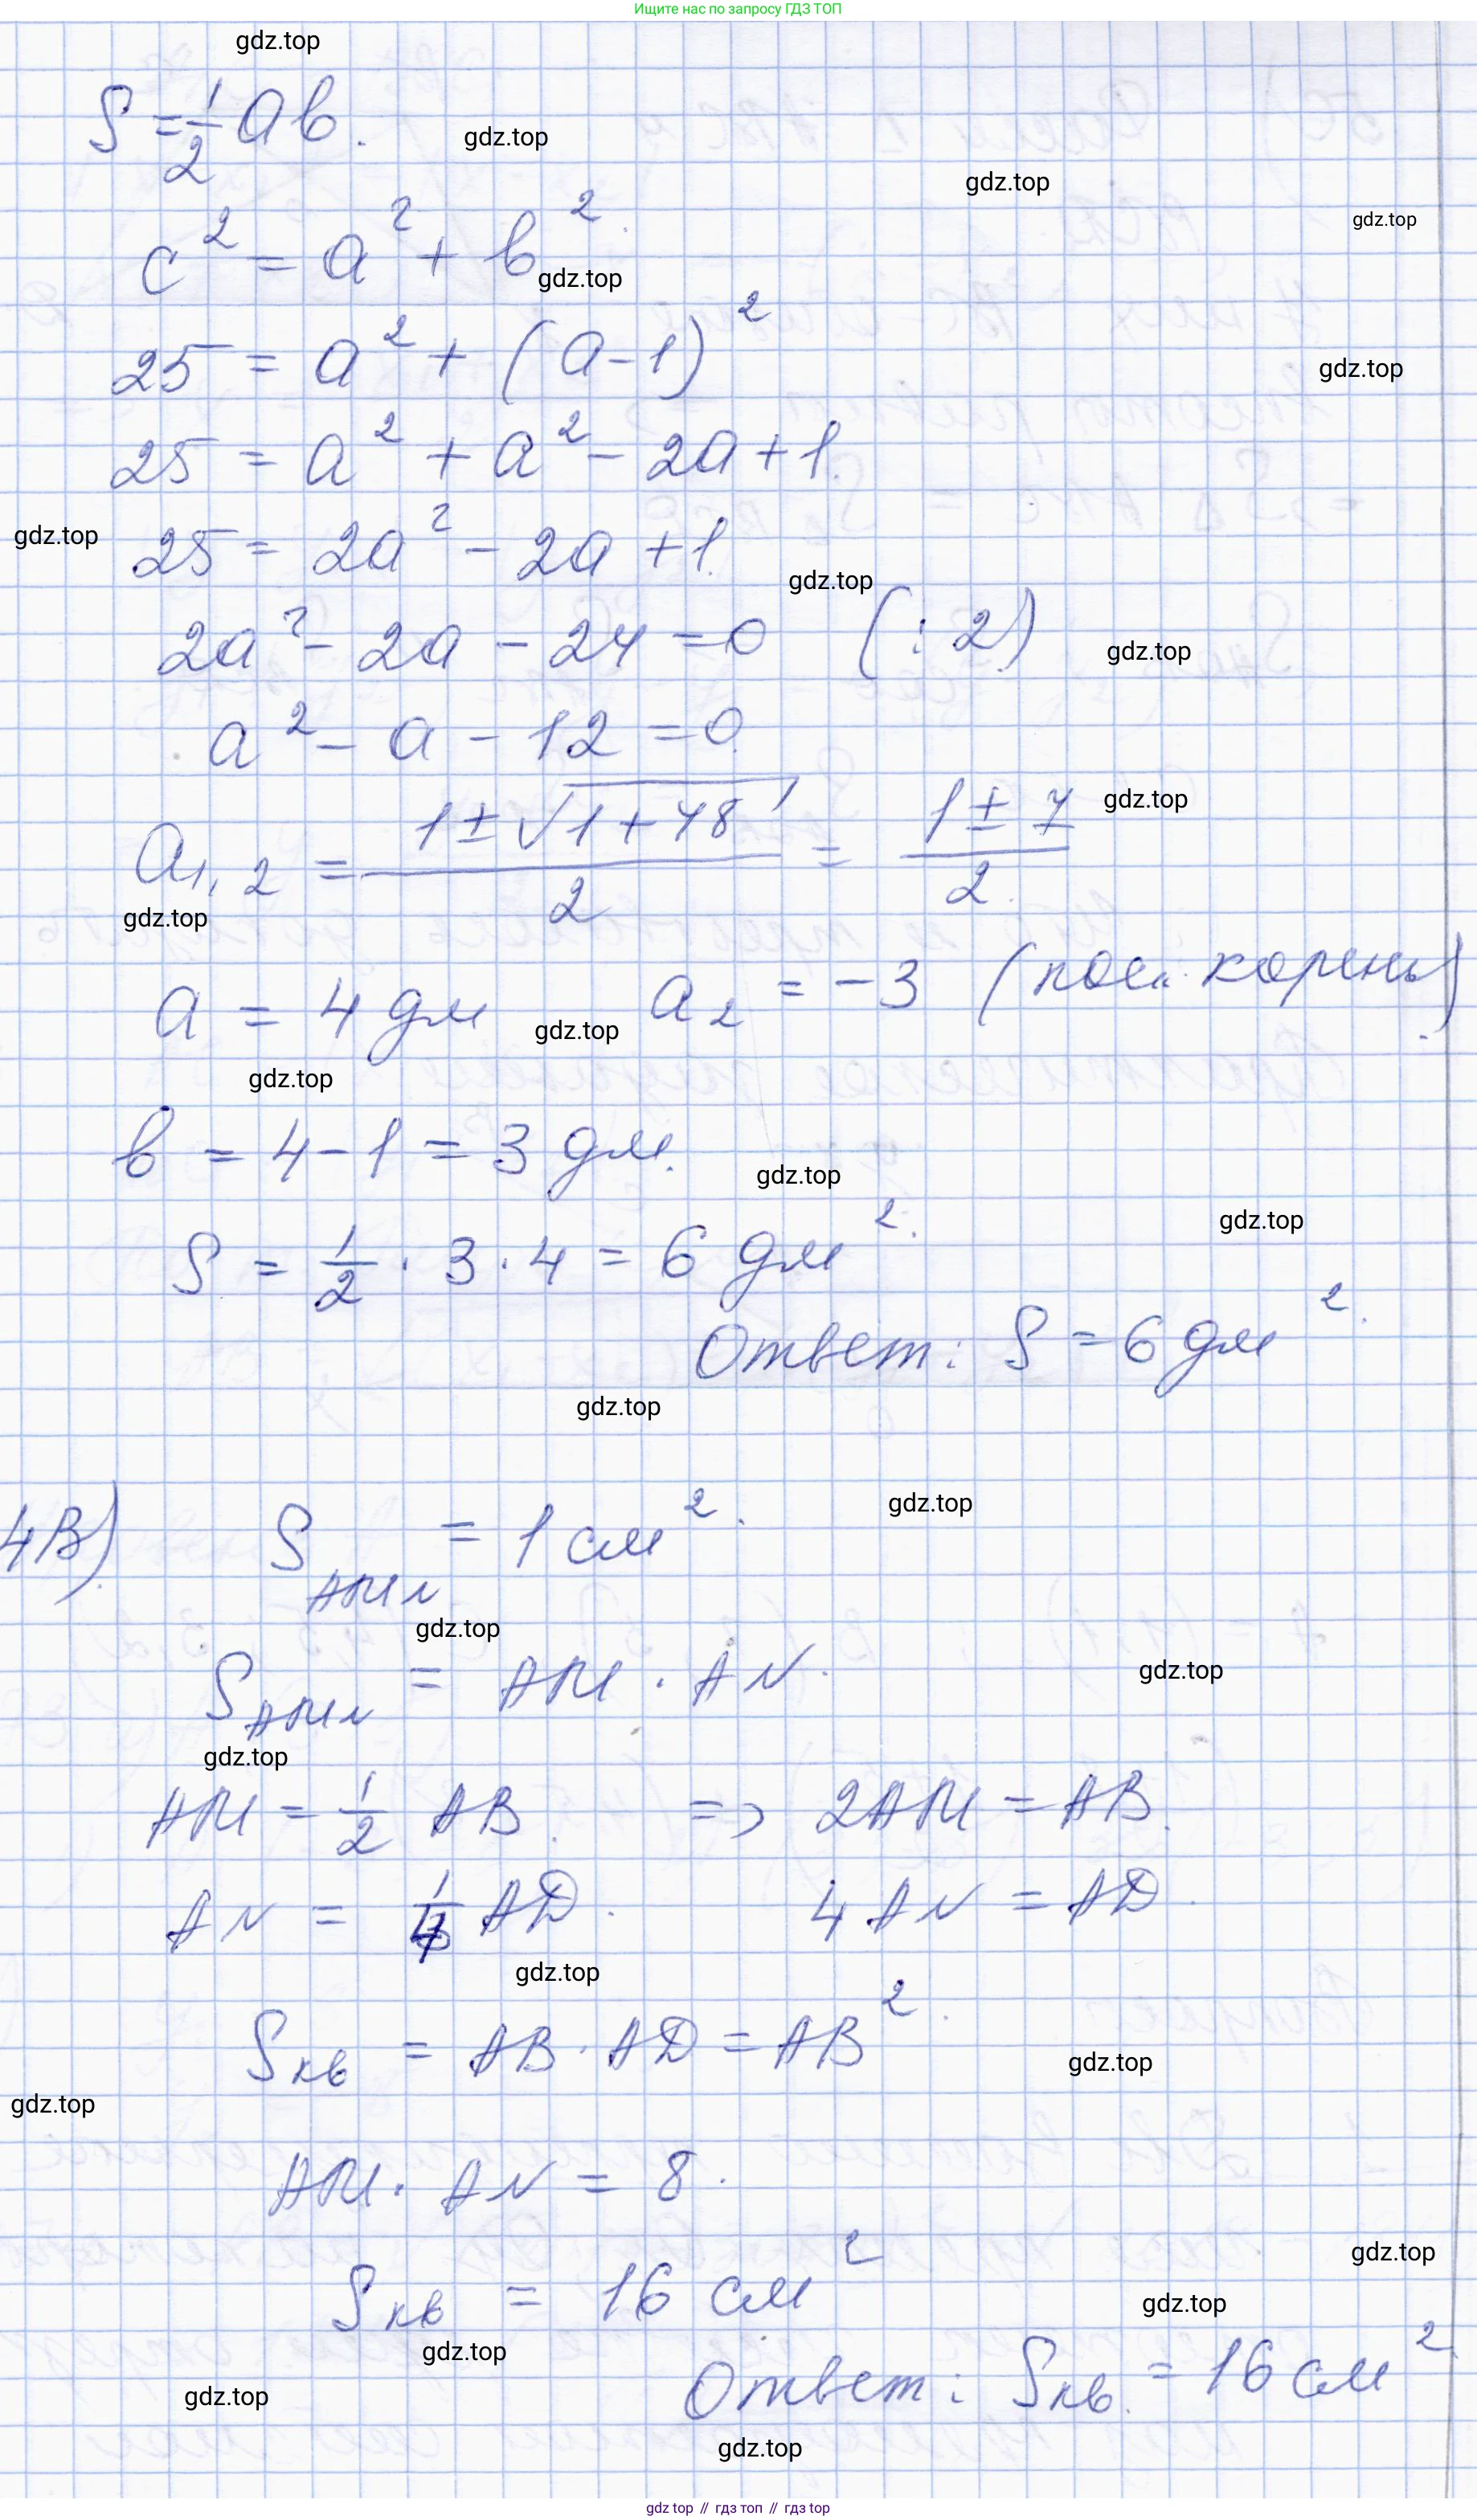 Ищите нас по запросу ГДЗ ТОП
gdz.top
S = 1/2 ab.
gdz.top
gdz.top
gdz.top
c² = a² + b².
gdz.top
25 = a² + (a-1)²
gdz.top
25 = a² + a² - 2a + 1.
gdz.top
25 = 2a² - 2a + 1.
gdz.top
2a² - 2a - 24 = 0 (: 2)
gdz.top
a² - a - 12 = 0
a₁,₂ = (1 ± √(1 + 48))/2 = (1 ± 7)/2.
gdz.top
gdz.top
a = 4 дм a₂ = -3 ( корень)
gdz.top
gdz.top
b = 4 - 1 = 3 дм.
gdz.top
gdz.top
S = 1/2 · 3 · 4 = 6 дм².
Ответ: S = 6 дм².
gdz.top
gdz.top
4В) S AMN = 1 см².
gdz.top
S AMN = AM · AN.
gdz.top
gdz.top
AM = 1/2 AB. => 2AM = AB.
AN = 1/4 AD. 4AN = AD.
gdz.top
Sкв = AB · AD = AB².
gdz.top
gdz.top
AM · AN = 8.
gdz.top
Sкв = 16 см²
gdz.top
gdz.top
Ответ: Sкв. = 16 см²
gdz.top
gdz.top
gdz top // гдз топ // гдз top